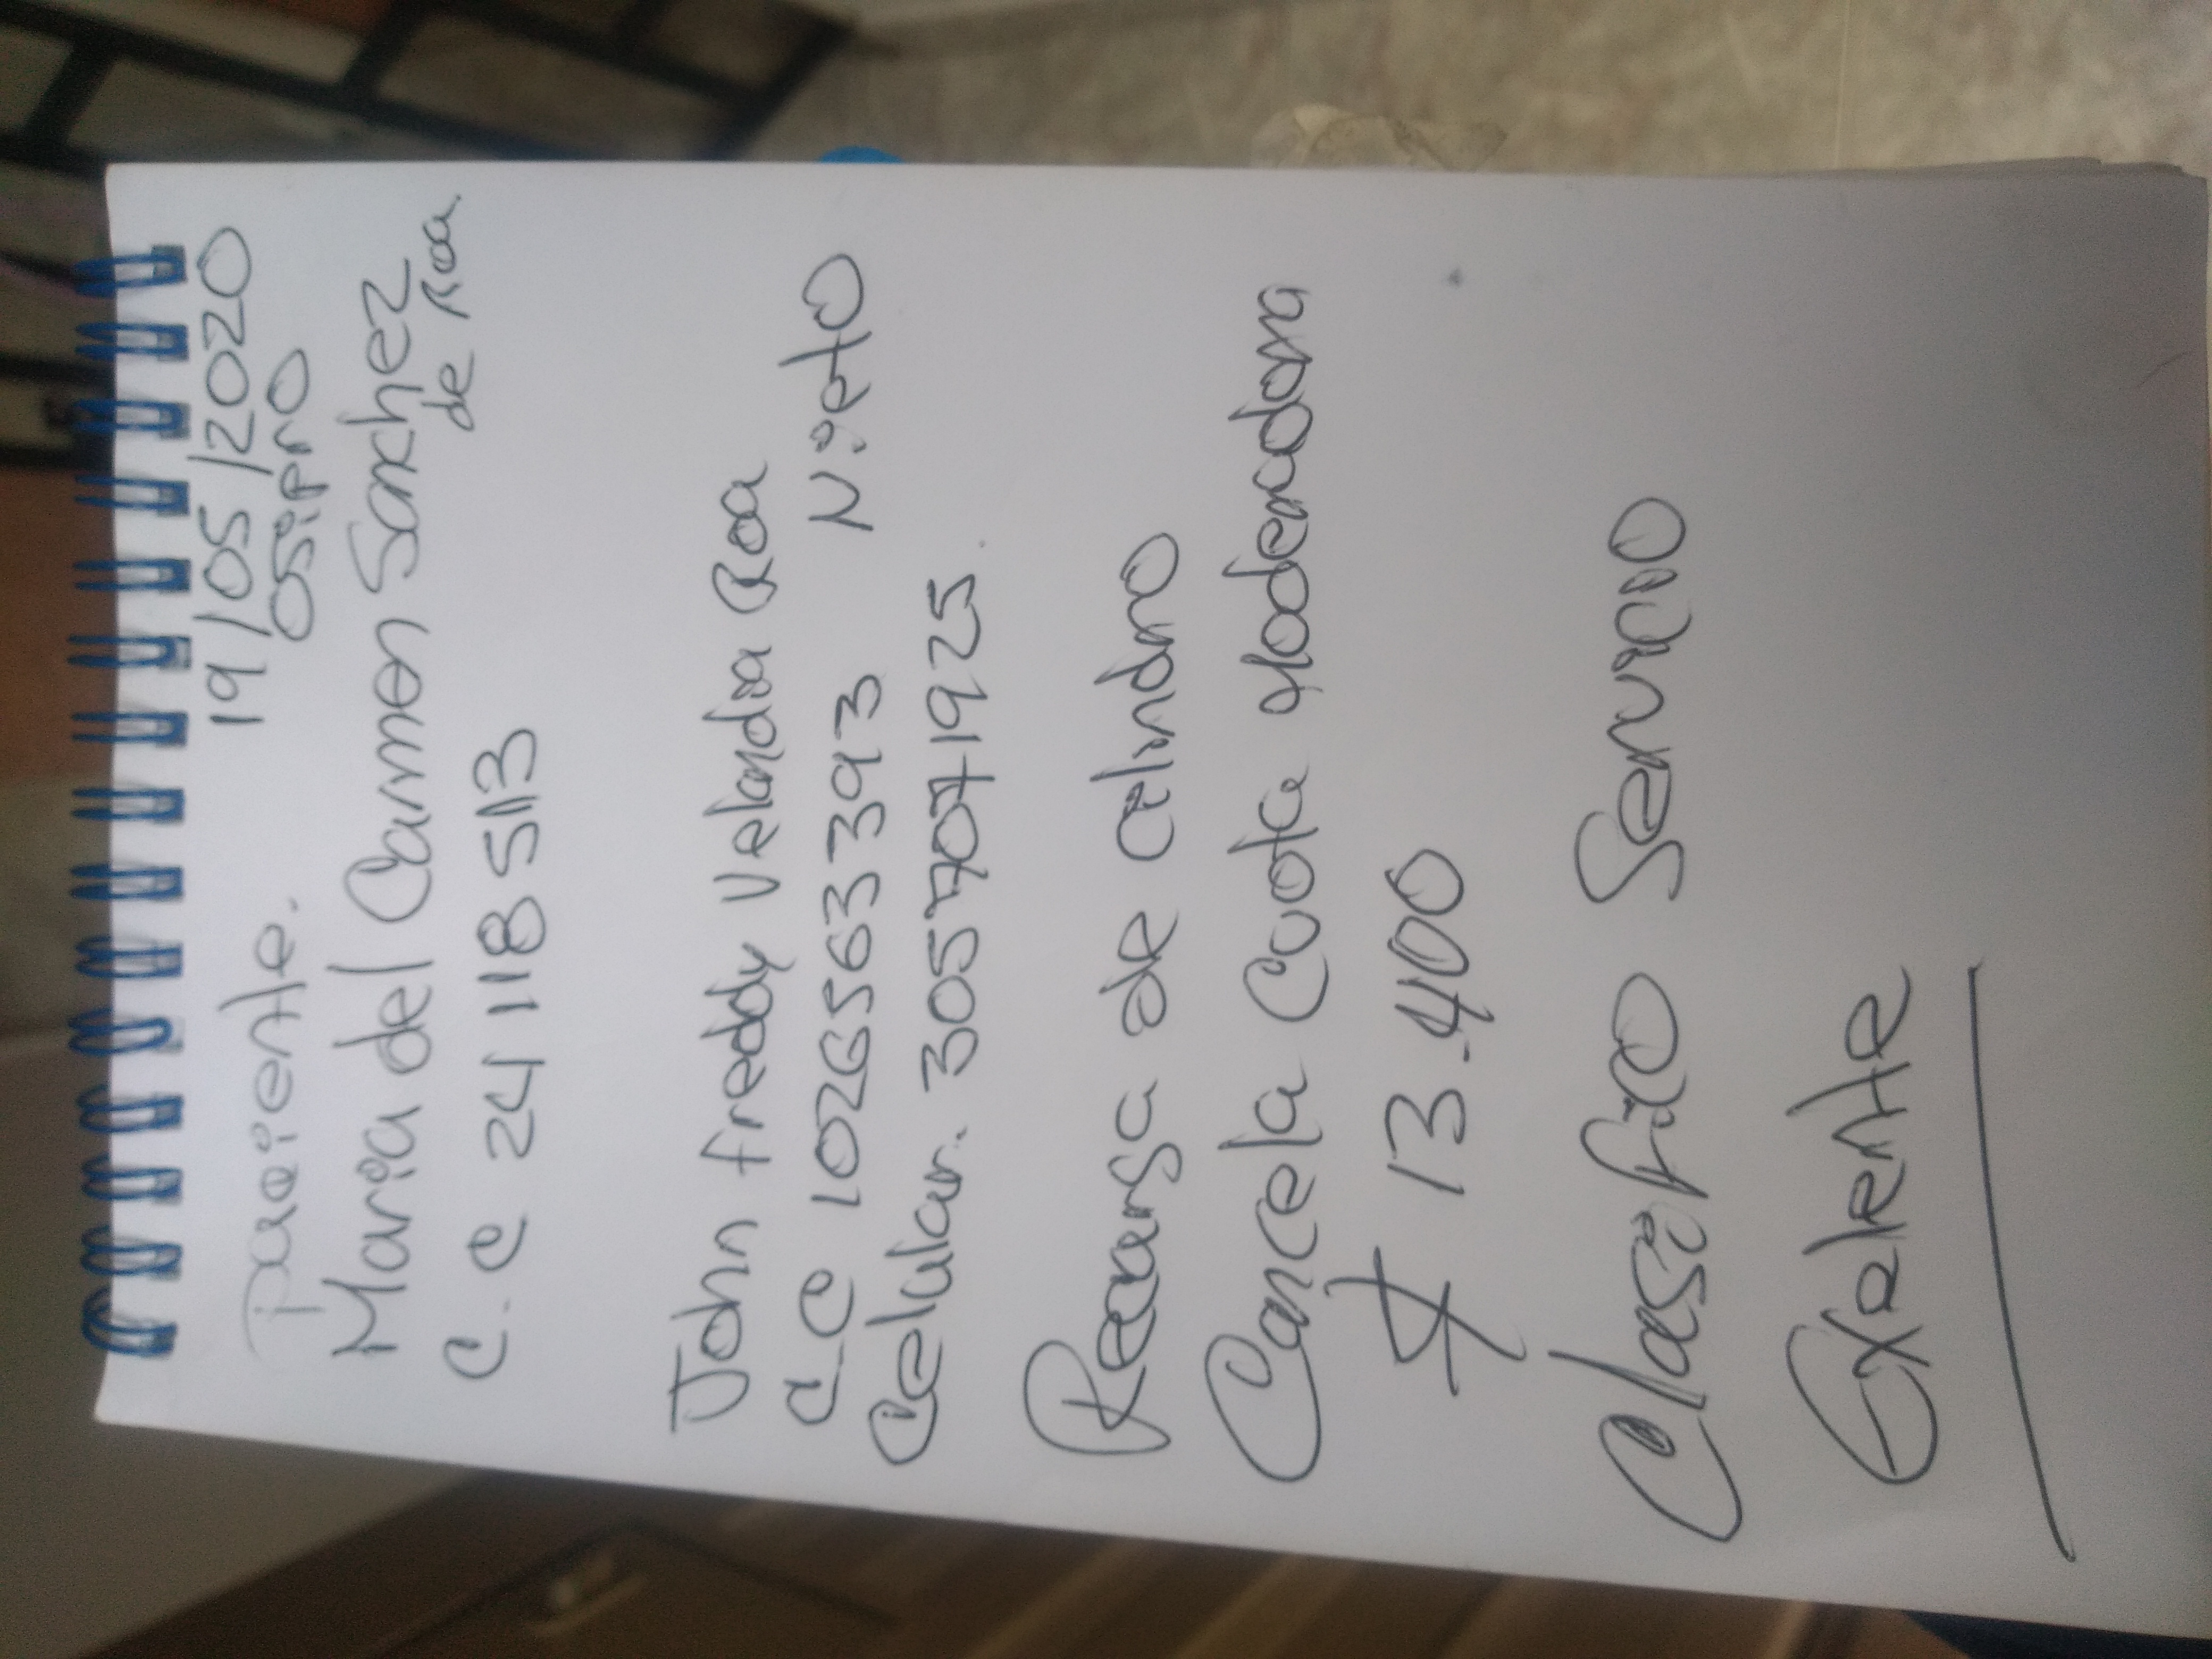 19/05/2020
paciente. Osipro
Maria del Carmen Sanchez
de Roa
C.C 24 118 513
John freddy Velandia Roa
C.C 1026563393 Nieto
Celular. 3057071925.
Recarga de cilindro
Cancela Cuota Moderadora
$ 13.400
Clasifico Servicio
Exelente